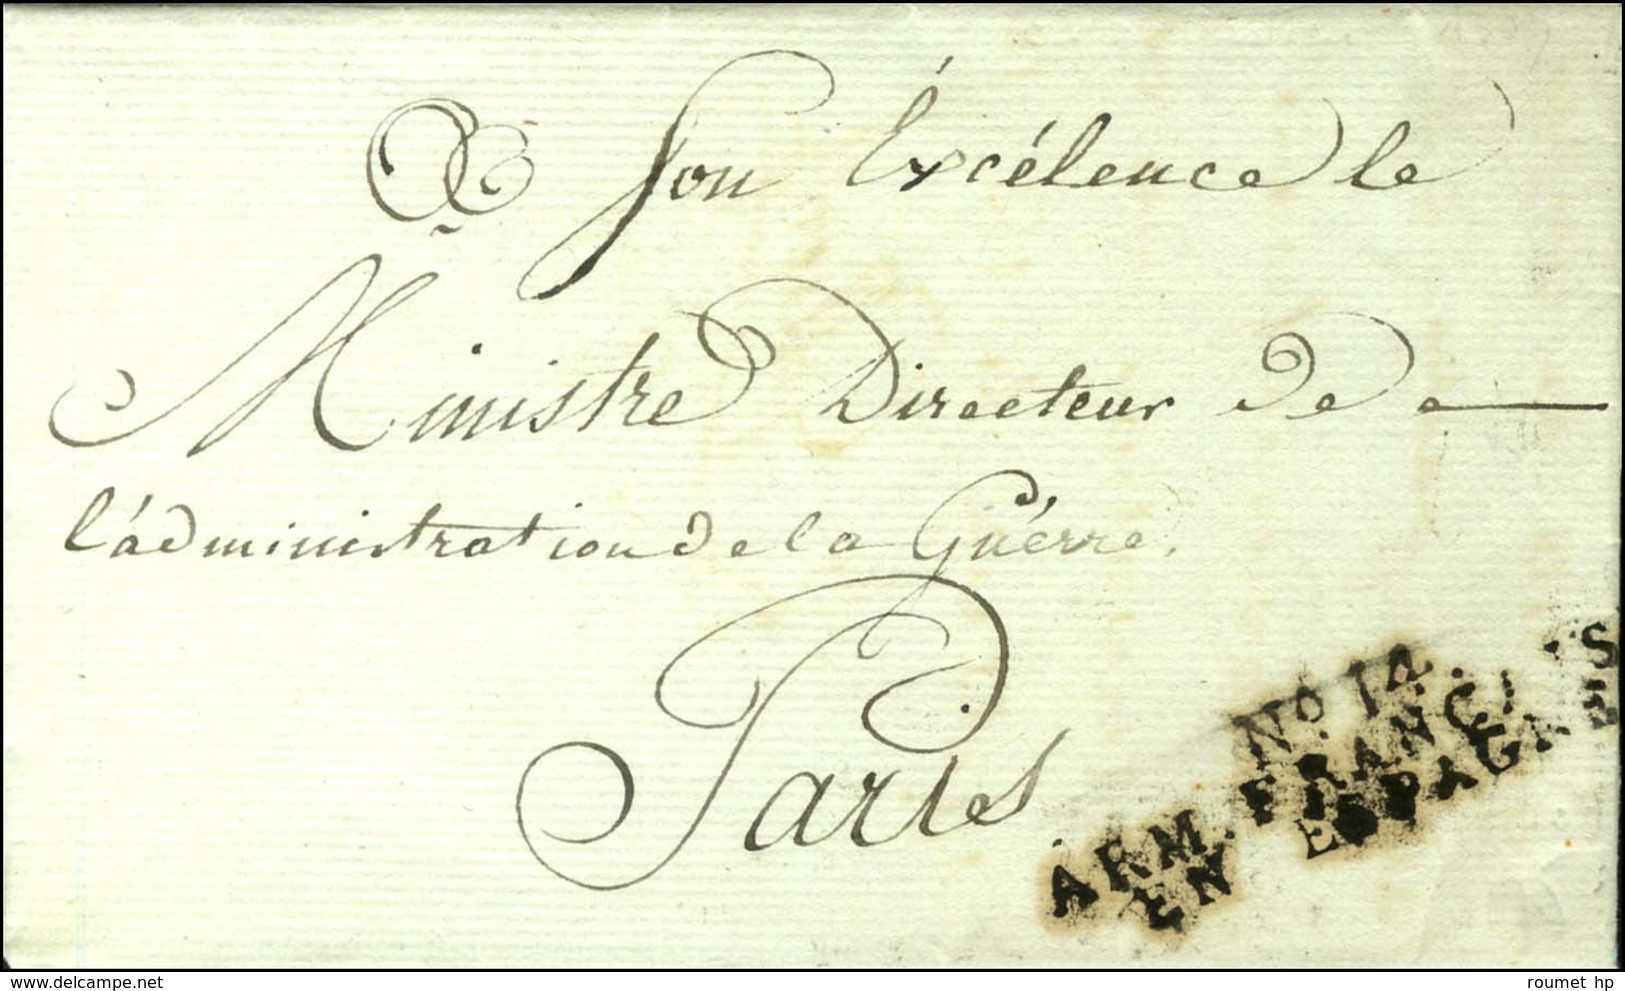 A Son Éxcélence le
Ministre Directeur de
l'administration de la Guérre,
Paris
No. 14.
ARM. FRANÇAIS
EN ESPAGNE
delcampe.net
roumet hp